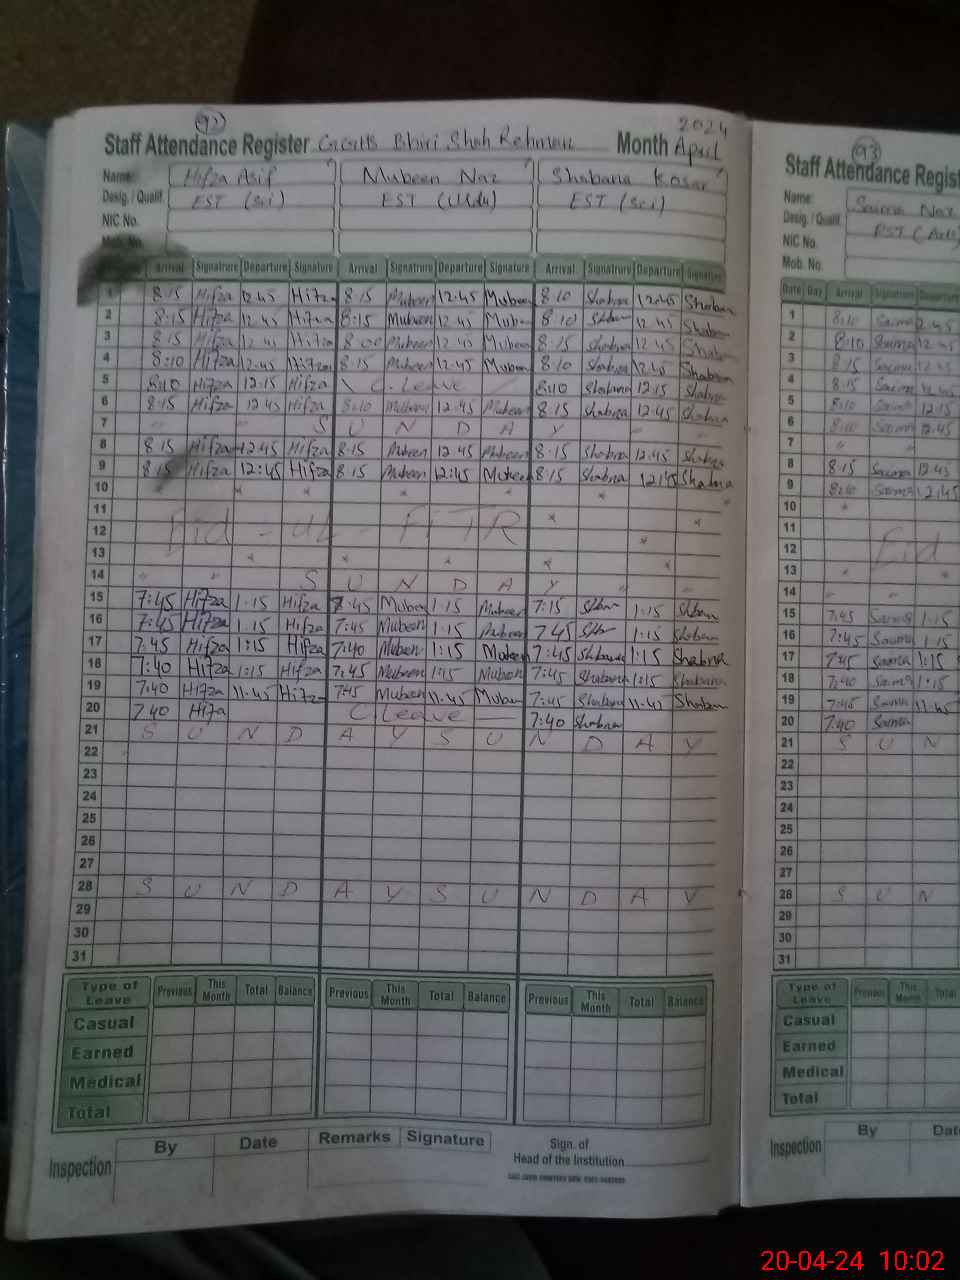 92
2024
Staff Attendance Register GGCMS Bhiri Shah Rehman Month April
Name: Hifza Asif Mubeen Naz Shabana Kosar
Desig. / Qualif. EST (Sci) EST (Urdu) EST (Sci)
NIC No.
Mob. No.
Arrival Signatrure Departure Signature Arrival Signatrure Departure Signature Arrival Signatrure Departure Signature
1 8:15 Hifza 12:45 Hifza 8:15 Mubeen 12:45 Mubeen 8:10 Shabna 12:45 Shabna
2 8:15 Hifza 12:45 Hifza 8:15 Mubeen 12:45 Mubeen 8:10 12:45 Shabna
3 8:15 Hifza 12:45 Hifza 8:00 Mubeen 12:45 Mubeen 8:15 Shabna 12:45 Shabna
4 8:10 Hifza 12:45 Hifza 8:15 Mubeen 12:45 Mubeen 8:10 Shabna 12:45 Shabna
5 8:10 Hifza 12:15 Hifza C. Leave 8:10 Shabna 12:15 Shabna
6 8:15 Hifza 12:45 Hifza 8:10 Mubeen 12:45 Mubeen 8:15 Shabna 12:45 Shabna
7 S U N D A Y
8 8:15 Hifza 12:45 Hifza 8:15 Mubeen 12:45 Mubeen 8:15 Shabna 12:45 Shabna
9 8:15 Hifza 12:45 Hifza 8:15 Mubeen 12:45 Mubeen 8:15 Shabna 12:45 Shabna
10
11
12 Eid - ul - FITR
13
14 S U N D A Y
15 7:45 Hifza 1:15 Hifza 7:45 Mubeen 1:15 Mubeen 7:15 1:15 Shaban
16 7:45 Hifza 1:15 Hifza 7:45 Mubeen 1:15 Mubeen 7:45 1:15 Shaban
17 7:45 Hifza 1:15 Hifza 7:40 Mubeen 1:15 Mubeen 7:45 Shabana 1:15 Shabna
18 7:40 Hifza 1:15 Hifza 7:45 Mubeen 1:15 Mubeen 7:45 Shabana 1:15 Shabana
19 7:40 Hifza 11:45 Hifza 7:45 Mubeen 11:45 Muban 7:45 Shabana 11:45 Shaban
20 7:40 Hifza C Leave 7:40 Shabna
21 S U N D A Y S U N D A Y
22
23
24
25
26
27
28 S U N D A Y S U N D A Y
29
30
31
Type of Leave Previous This Month Total Balance Previous This Month Total Balance Previous This Month Total Balance
Casual
Earned
Medical
Total
Inspection By Date Remarks Signature Sign. of
Head of the Institution
93
Staff Attendance Regist
Name: Saima Naz
Desig. / Qualif. PST (Arts)
NIC No.
Mob. No.
Date Day Arrival Signatrure Departure
1 8:10 Saima 12:45
2 8:10 Saima 12:45
3 8:15 Saima 12:45
4 8:15 Saima 12:45
5 8:10 Saima 12:15
6 8:10 Saima 12:45
7
8 8:15 Saima 12:45
9 8:10 Saima 12:45
10
11
12 Eid
13
14
15 7:45 Saima 1:15
16 7:45 Saima 1:15
17 7:45 Saima 1:15
18 7:40 Saima 1:15
19 7:45 Saima 11:45
20 7:40 Saima
21 S U N
22
23
24
25
26
27
28 S U N
29
30
31
Type of Leave Previous This Month Total
Casual
Earned
Medical
Total
Inspection By Dat
20-04-24 10:02